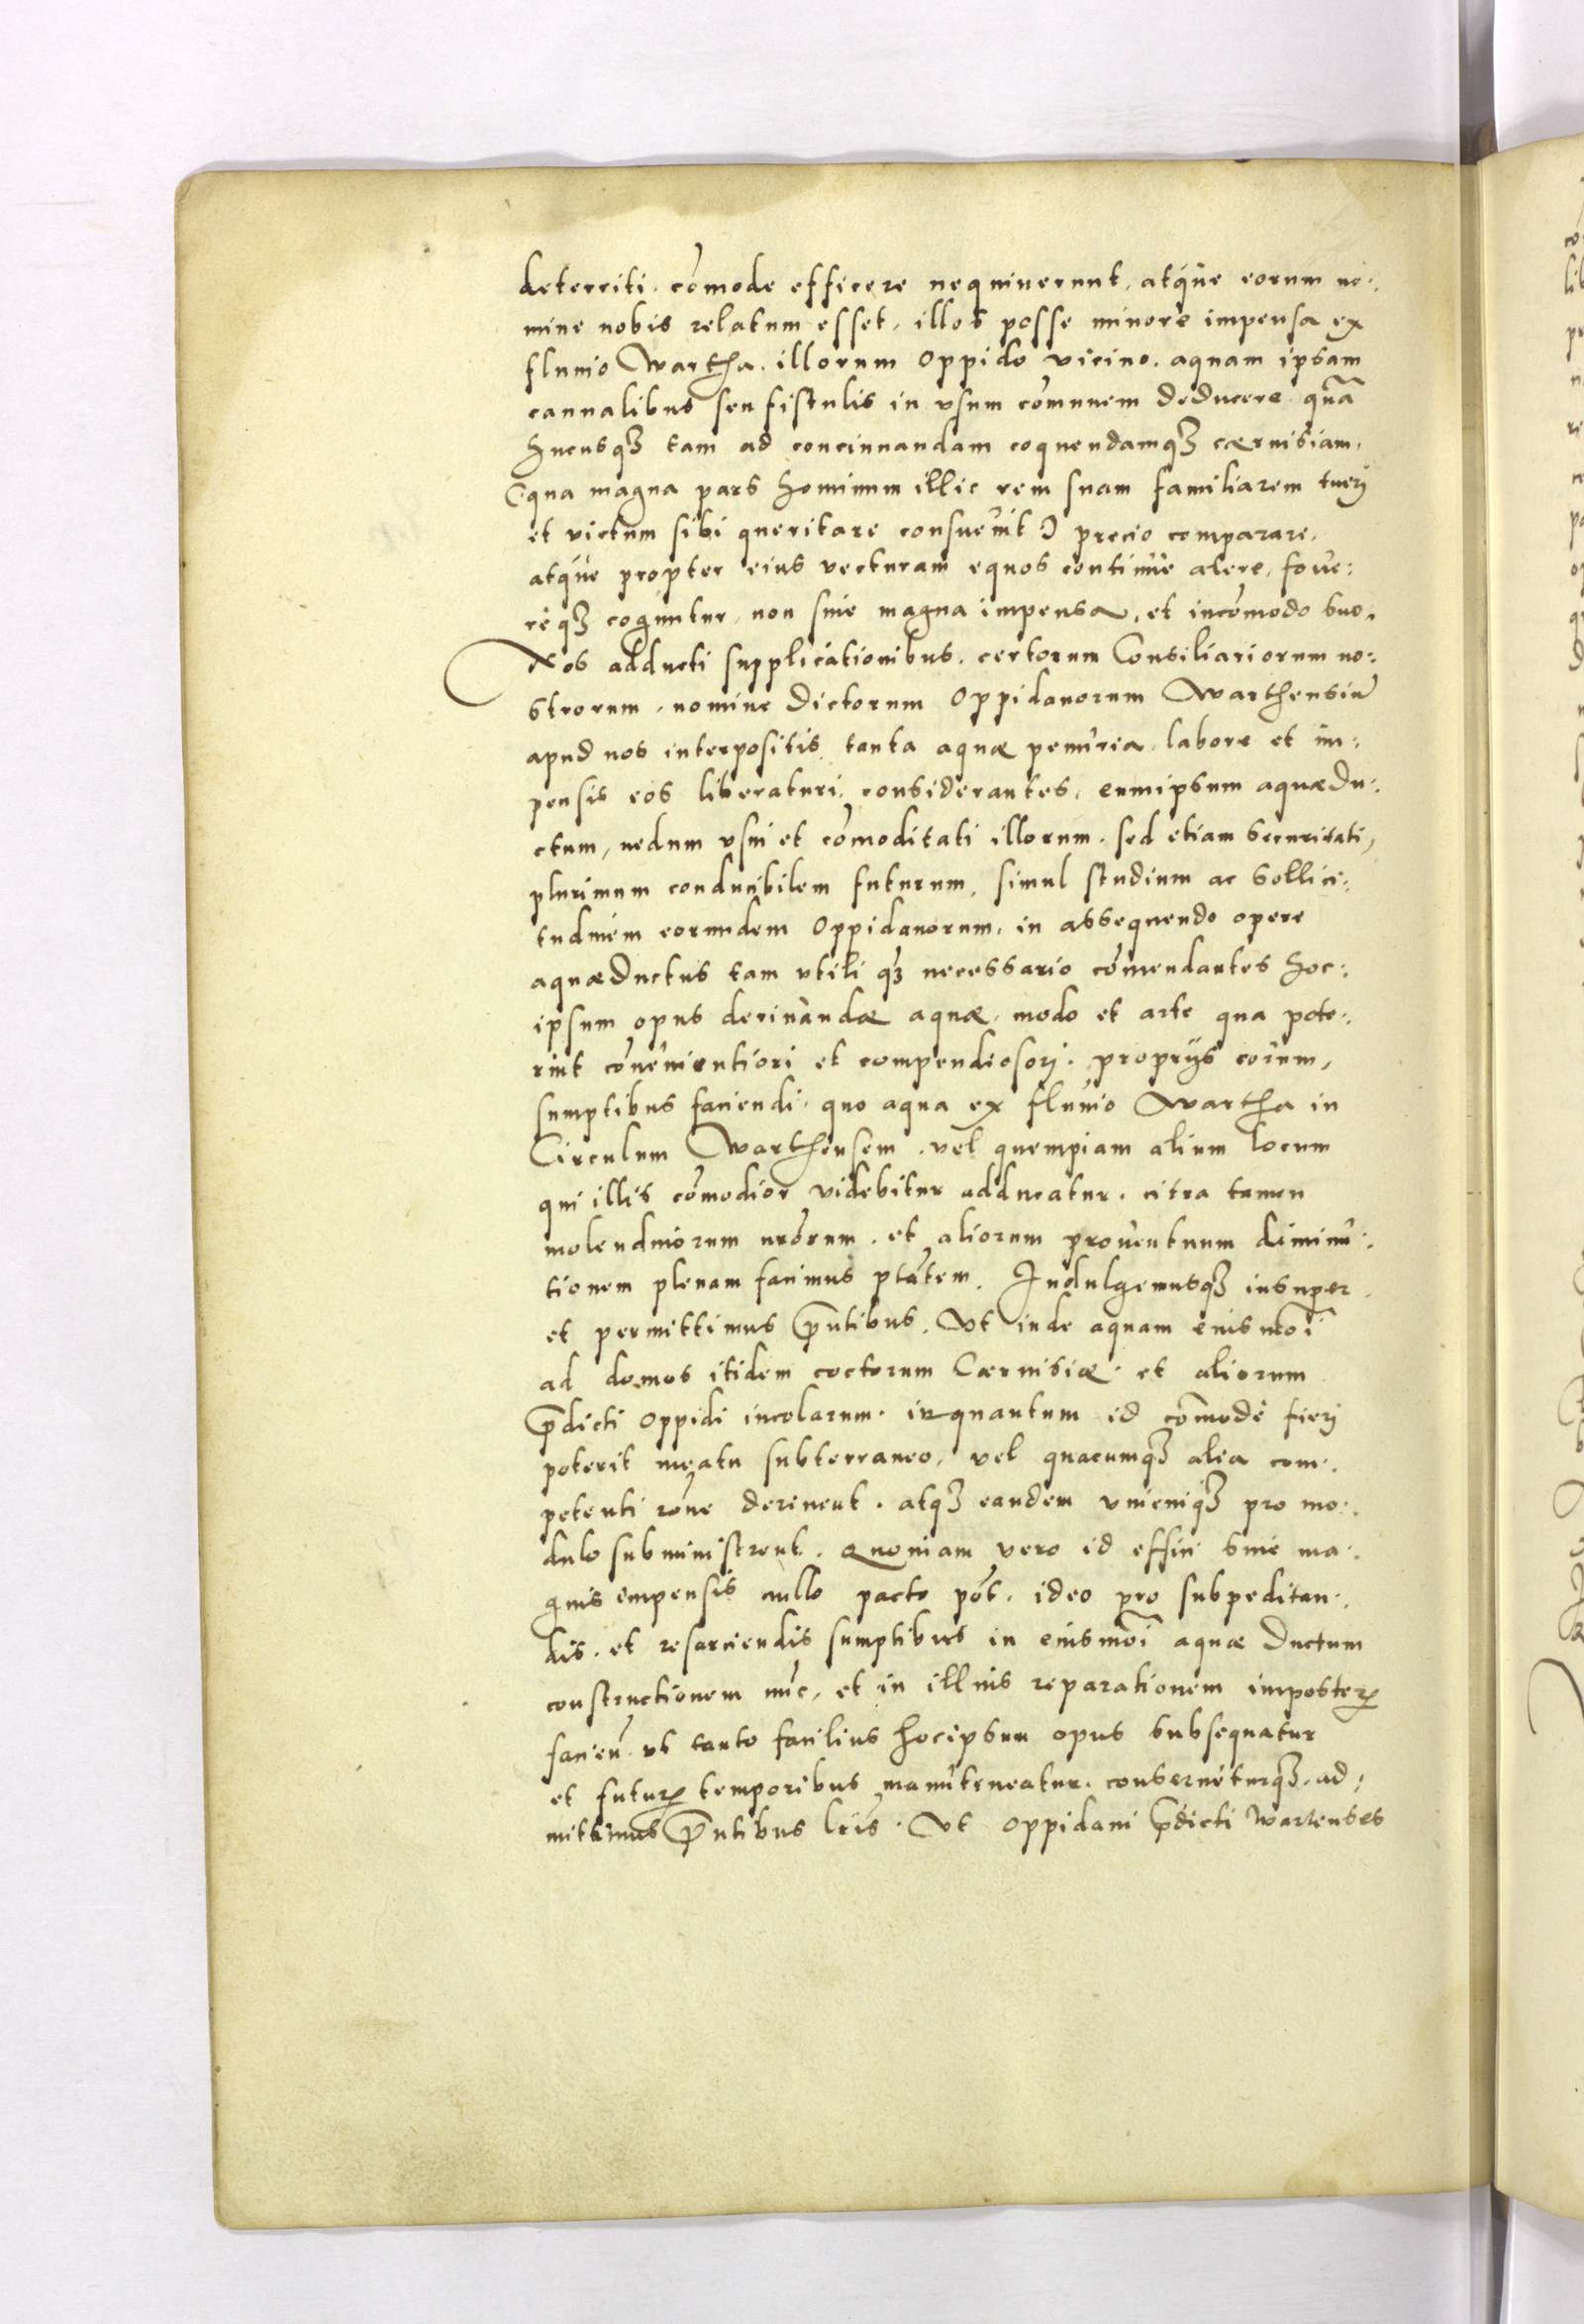 deterriti. com̃ode efficere nequiuerunt. atque eorum no:
mine nobis relatum esset, illos posse minore impensa ex
fluuio Wartha. illorum oppido vicino. aquam ipsam
cannalibus seu fistulis in vsum com̃unem deducere quã
hucusqʒ tam ad concinnandam coquendamqʒ cæruisiam,
(qua magna pars hominum illic rem suam familiarem tuerj
et victum sibi queritare consueuit) precio comparare,
atque propter eius vecturam equos continue alere, foue:
reqʒ coguntur, non sine magna impensa, et incom̃odo suo.
Nos adducti supplicationibus. certorum Consiliariorum no:
strorum, nomine dictorum Oppidanorum Warthensiũ
apud nos interpositis, tanta aquæ penuria, labore et im:
pensis eos liberaturi, considerantes, eumipsum aquædu:
ctum, nedum vsui et com̃oditati illorum. sed etiam securitati,
plurimum conducibilem futurum, simul studium ac sollici:
tudinem eorundem Oppidanorum, in assequendo opere
aquæductus tam vtili qʒ necessario com̃endantes hoc:
ipsum opus deriuandæ aquæ, modo et arte qua pote:
rint conuenientiori et compendiosorj. proprijs eorum,
sumptibus faciendi. quo aqua ex fluuio Wartha in
Circulum Warthensem. vel quempiam alium locum
qui illis com̃odior videbitur adducatur. citra tamen
molendinorum nrõrum. et aliorum prouentuum diminu:
tionem plenam facimus ptãtem. Indulgemusqʒ insuper
et permittimus p̃ntibus. Vt inde aquam eiusmõi
ad domos itidem coctorum Cæruisiæ. et aliorum
p̃dicti oppidi incolarum. inquantum id com̃ode fierj
poterit meatu subterraneo, vel quacumqʒ alia com:
petenti rõne deriuent. atqʒ eandem vnicuiqʒ pro mo:
dulo subministrent. Quoniam vero id effici sine ma:
gnis impensis nullo pacto põt. ideo pro subpeditan:
dis. et resarciendis sumptibus in eiusmõi aquæ ductum
constructionem nũc, et in illius reparationem imposterũ
facieñ. vt tanto facilius hocipsum opus subsequatur
et futurꝭ temporibus manuteneatur. conserueturqʒ. ad:
mittimus p̃ntibus lr̃is. Vt oppidani p̃dicti Wartenses